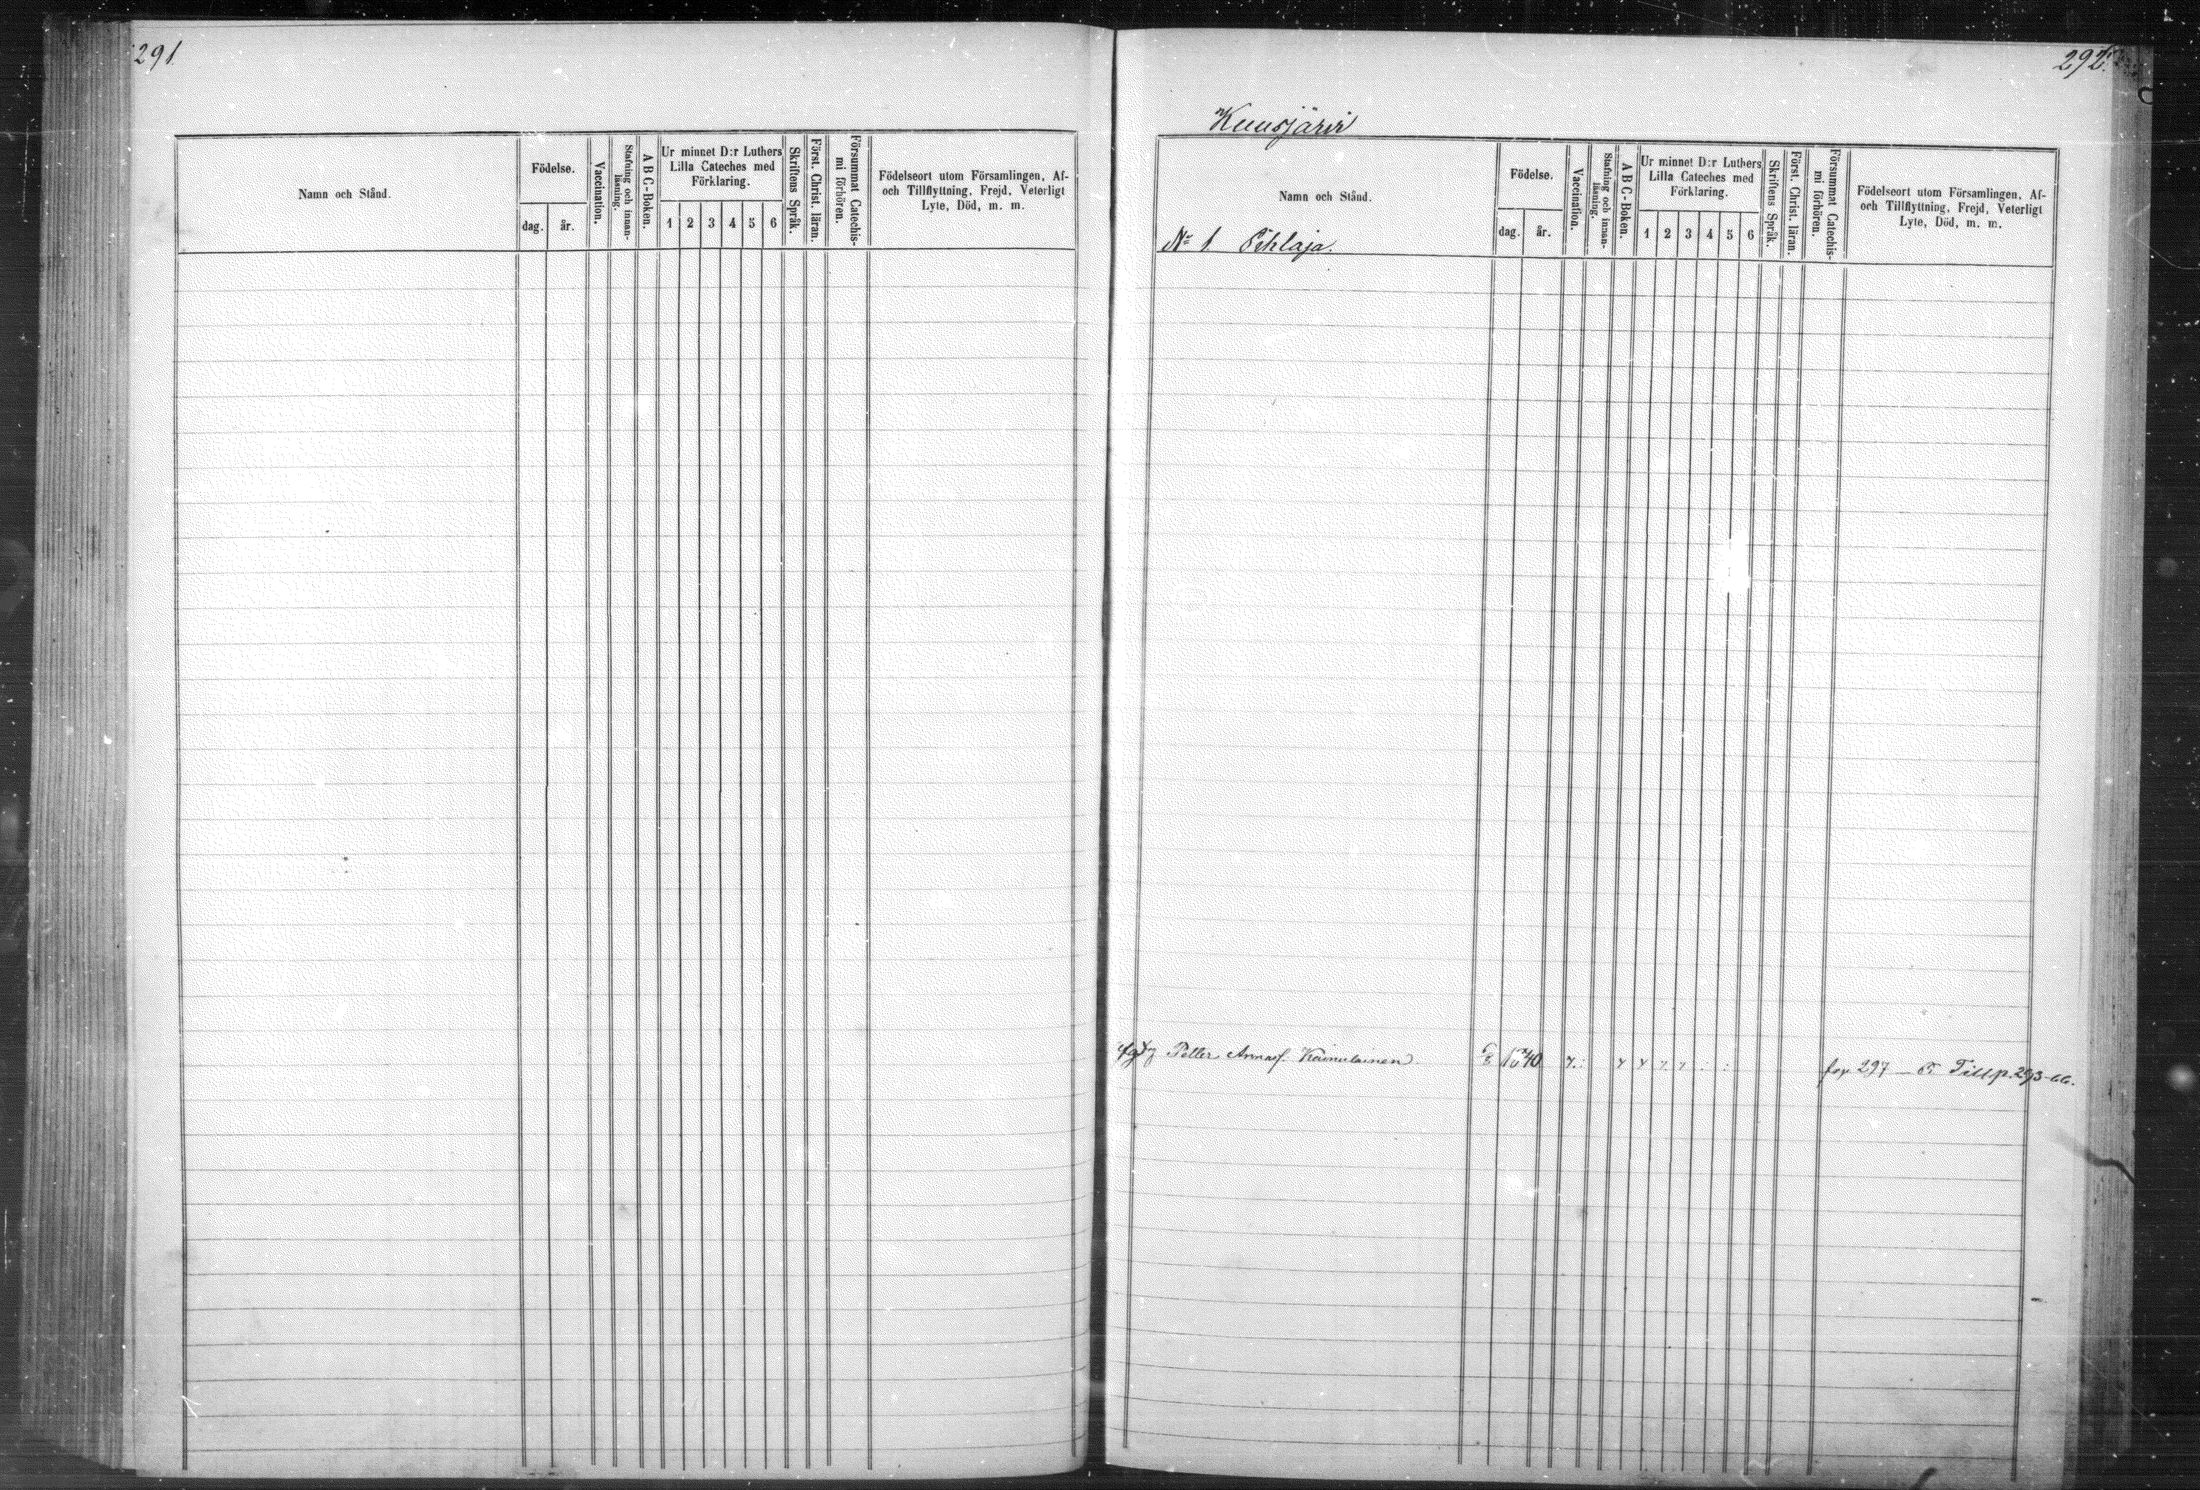 291
Namn och Stånd.
Födelse.
dag. år.
Vaccination.
Stafning och innan-
läsning.
A B C-Boken.
Ur minnet D:r Luthers
Lilla Cateches med
Förklaring.
1 2 3 4 5 6
Skriftens Språk.
Först. Christ. läran.
Försummat Catechis-
mi förhören.
Födelseort utom Församlingen, Af-
och Tillflyttning, Frejd, Veterligt
Lyte, Död, m. m.
292.
Kuusjärvi
Namn och Stånd.
No 1 Pihlaja.
Födelse.
dag. år.
Vaccination.
Stafning och innan-
läsning.
A B C-Boken.
Ur minnet D:r Luthers
Lilla Cateches med
Förklaring.
1 2 3 4 5 6
Skriftens Språk.
Först. Christ. läran.
Försummat Catechis-
mi förhören.
Födelseort utom Församlingen, Af-
och Tillflyttning, Frejd, Veterligt
Lyte, Död, m. m.
Petter Kaimulainen. 40 297 Till p. 293-66.